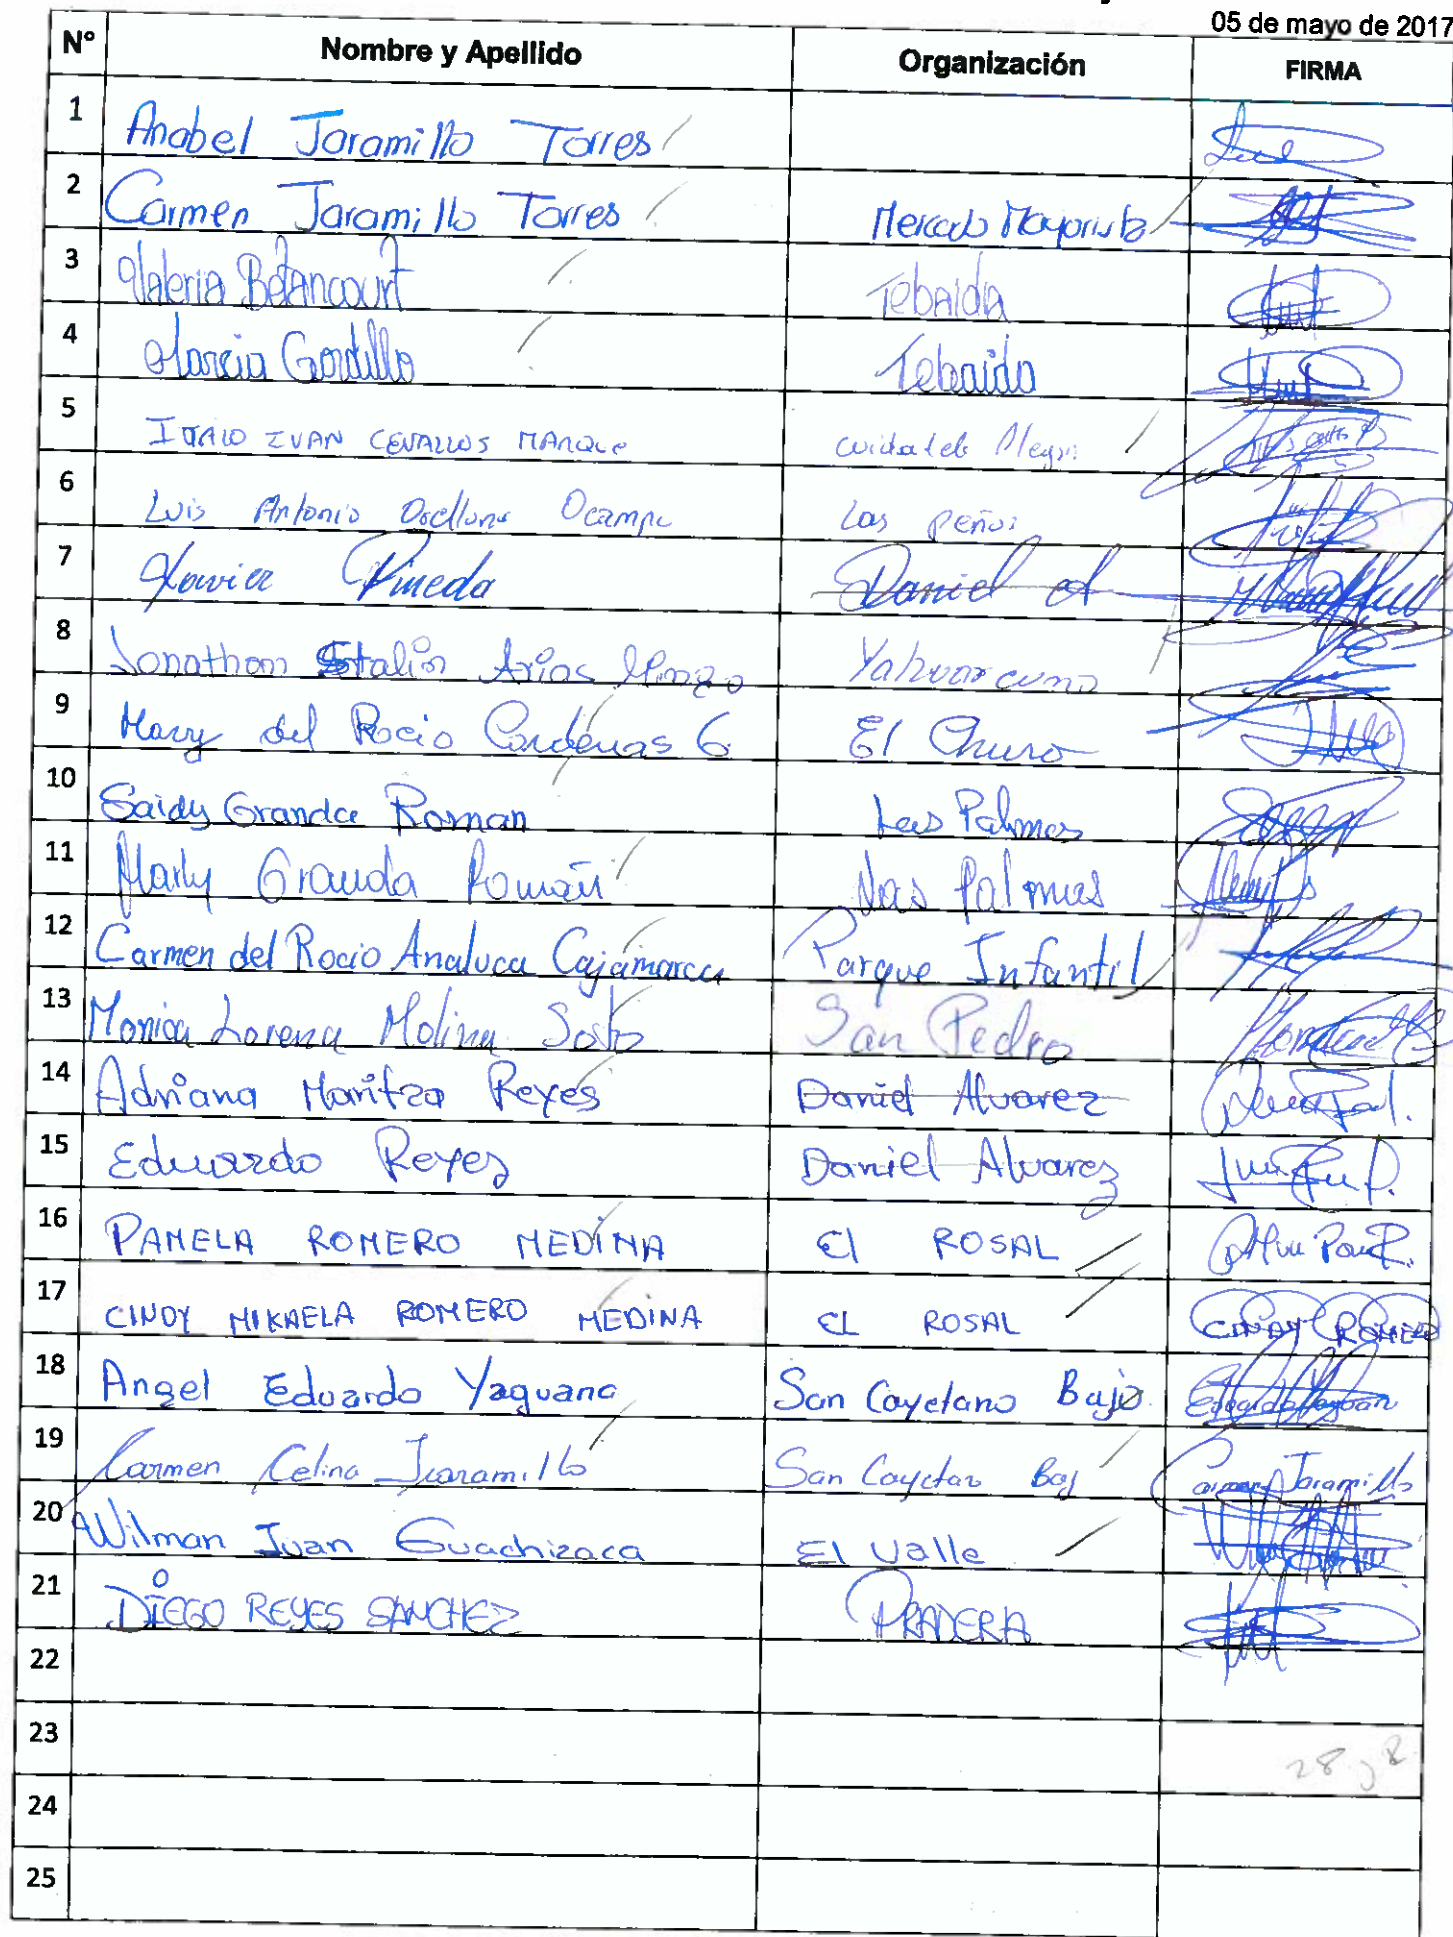 05 de mayo de 2017
N° Nombre y Apellido Organización FIRMA
1 Anabel Jaramillo Torres
2 Carmen Jaramillo Torres Mercado Mayorista
3 Valeria Betancourt Tebaida
4 Marcia Gordillo Tebaida
5 ITALO IVAN CEVALLOS
6 Luis Antonio Orellana Ocampo Las Peñas
7 Xavier Pineda Daniel A
8 Jonathan Stalin Arias
9 Mary del Rocio Cardenas G El Churo
10 Saidy Granda Roman Las Palmas
11 Marly Granda Román Las Palmas
12 Carmen del Rocio Analuca Cajamarca Parque Infantil
13 Monica Lorena Molina Soto San Pedro
14 Adriana Maritza Reyes Daniel Alvarez
15 Eduardo Reyes Daniel Alvarez
16 PAMELA ROMERO MEDINA El ROSAL
17 CINDY MIKAELA ROMERO MEDINA EL ROSAL CINDY ROMERO
18 Angel Eduardo Yaguana San Cayetano Bajo
19 Carmen Celina Jaramillo San Cayetan Baj Carmen Jaramillo
20 Wilman Juan Guachizaca El Valle
21 DIEGO REYES SANCHEZ PRADERA
22
23
24
25